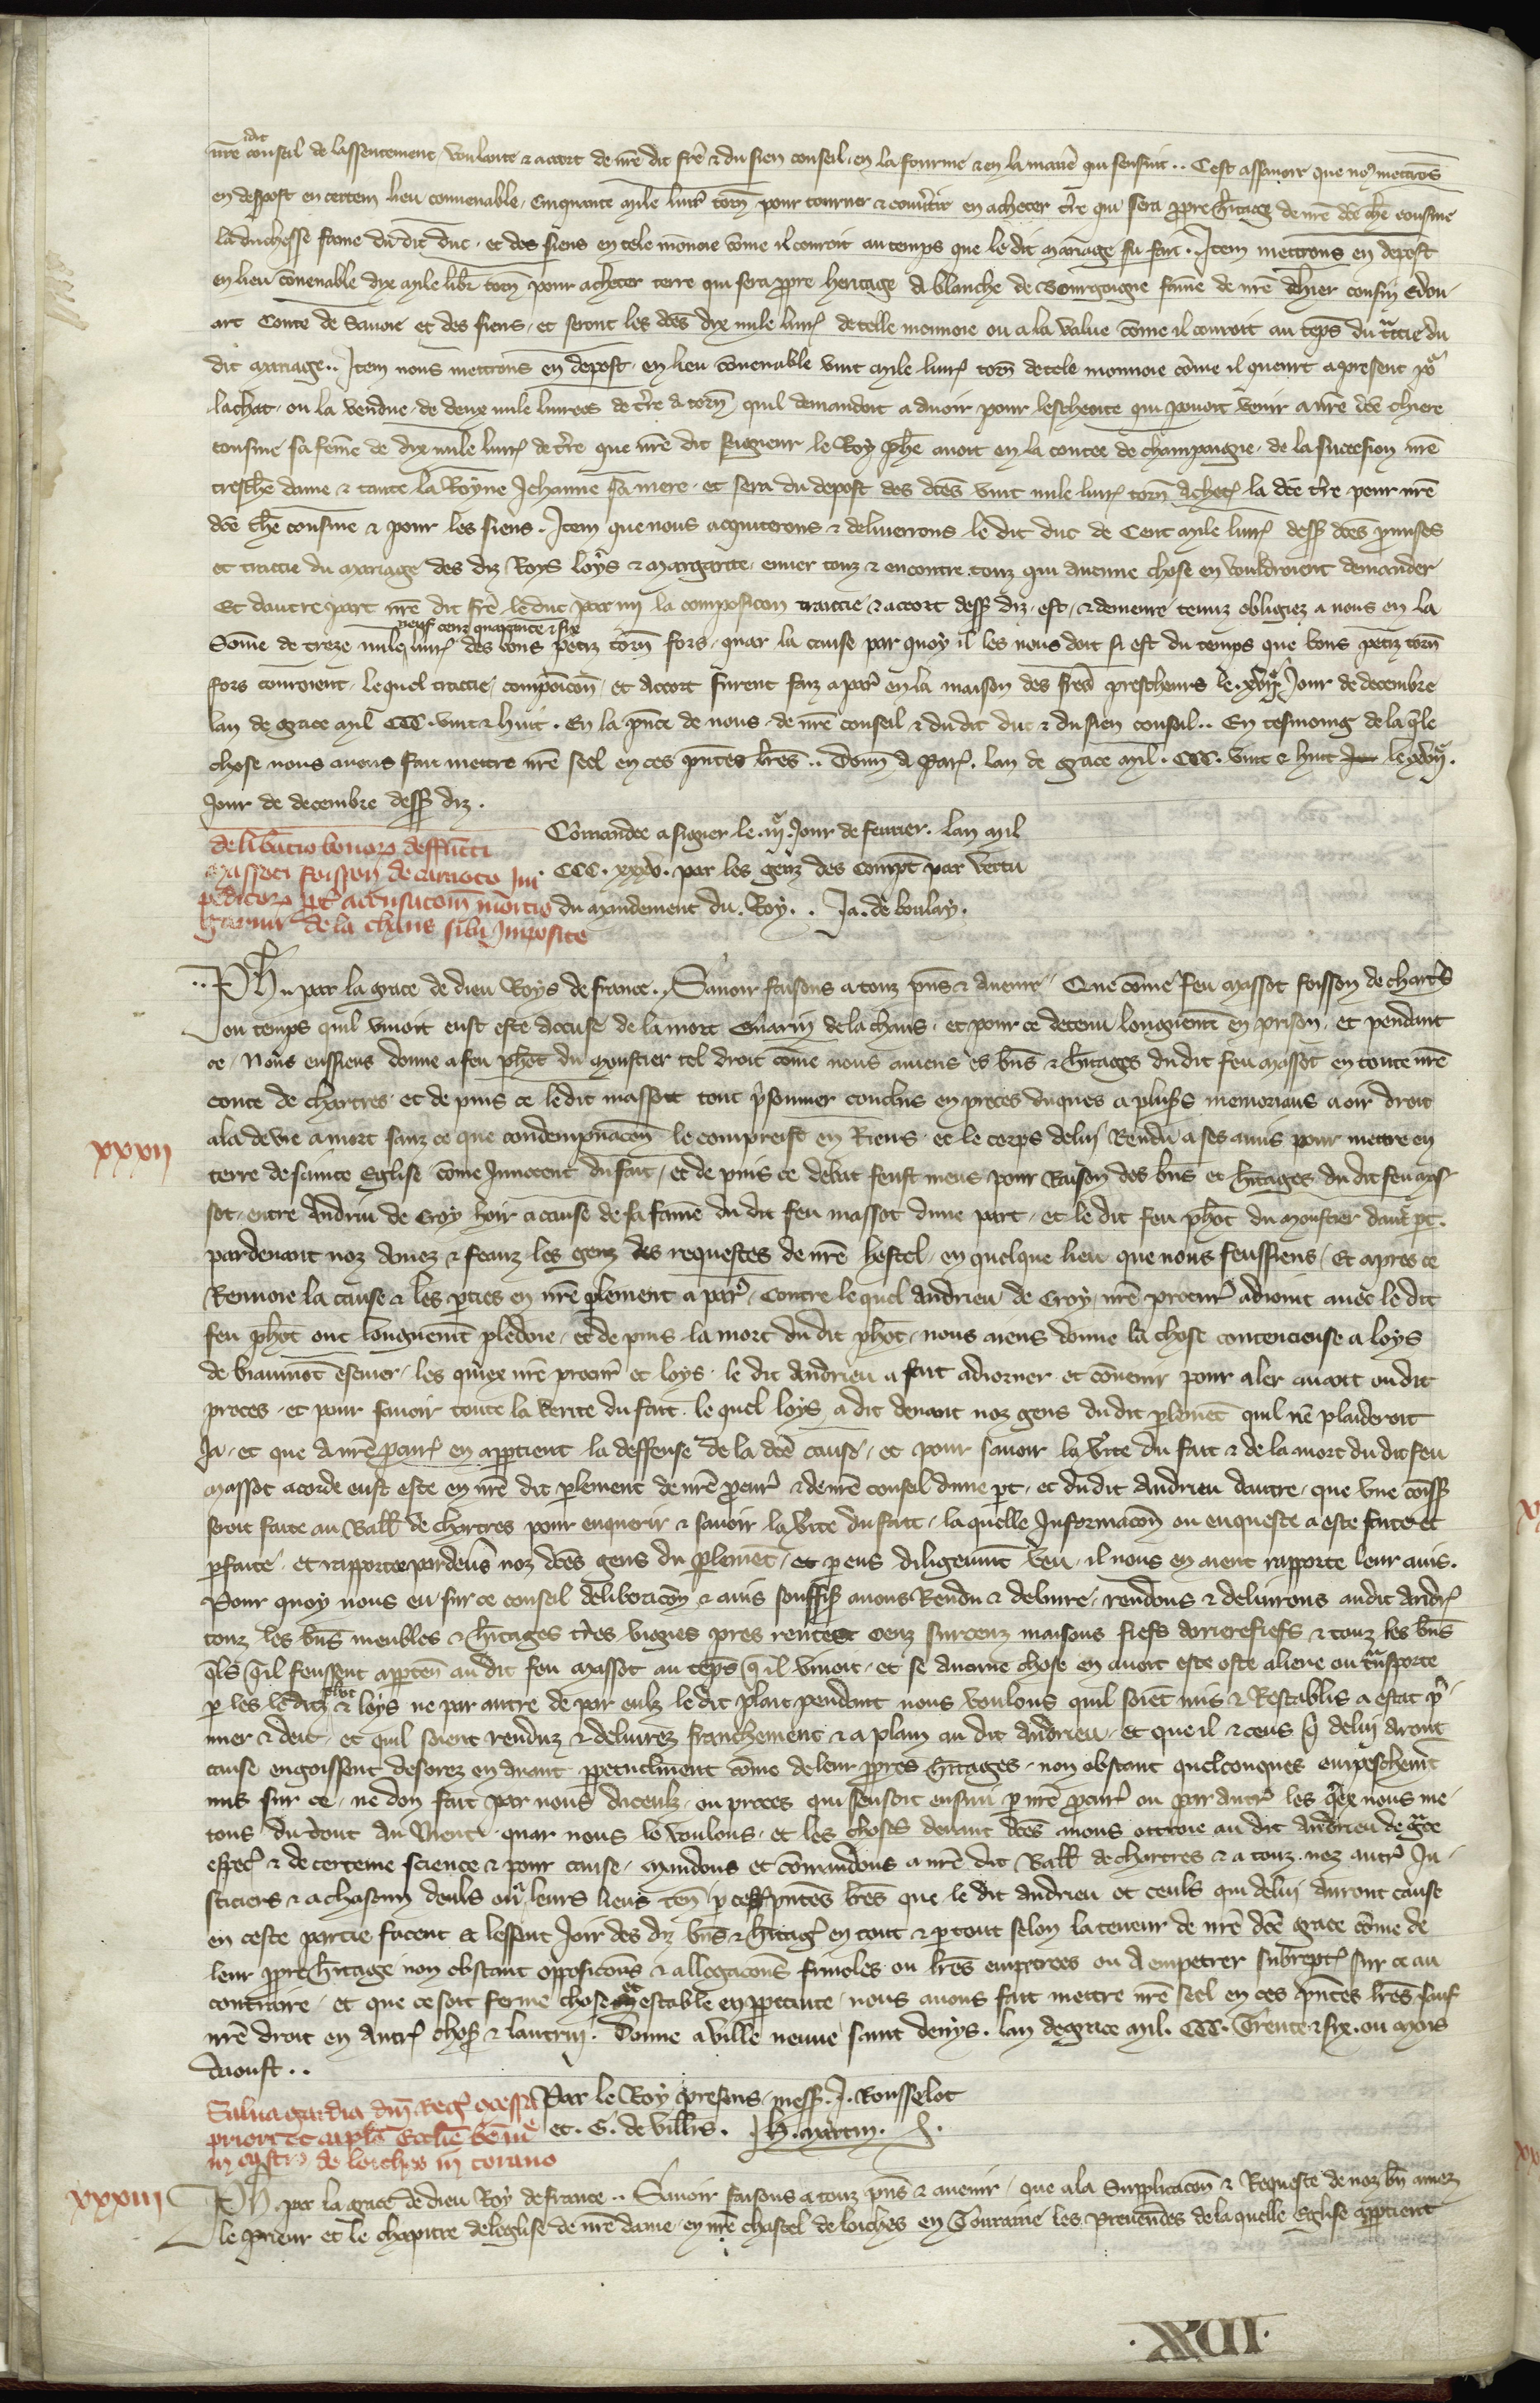 nr̄e dit conseil de lassentement voulante & acort de nr̄e dit fr̄e & du sien conseil en la fourme & en la maniē qui sensuit .. Cest assavoir que noꝰ mettrōs
en depost en certein lieu convenable Cinquante mile livr̄ torn̄ pour tourner & convertir en acheter tr̄re qui sera ꝓpre h̄itage de nr̄e dc̄e ch̄e cousine
la duchesse fame du dit duc et des siens en tele monoie cōme il couroit au temps que le dit mariage fu fait . Item mettrons en depost
en lieu cōvenable dix mile libr̄ torn̄ pour acheter terre qui sera ꝓpre heritage a blanche de Bourgoigne fāme de nr̄e chier cousin Edou
art Conte de Savoie et des siens et seront les dc̄es dix mile livr̄ de telle monnoie ou a la value cōme il couroit au tēps du t̄ctie du
dit mariage .. Item nous mettrons en depost en lieu cōvenable vint mile livr̄ torn̄ de tele monnoie cōme il queurt a present poʳ
lachat ou la vendue de deux mile livrees de tr̄re a torn̄ quil demandoit a avoir pour lescheoite qui povoit venir a nr̄e dc̄e chiere
cousine sa feme de dix mile livr̄ de tr̄re que nr̄e dit seigneur le Roy ph̄e avoit en la contee de champaigne de la succession nr̄e
tresch̄e dame & tante la Royne Jehanne sa mere et sera du depost des dc̄es vint mile livr̄ torn̄ achet̄ la dc̄e tr̄re pour nr̄e
dc̄e ch̄e cousine & pour les siens . Item que nous acquiterons & deliverrons le dit duc de Cent mile livr̄ dess̄ dc̄es ꝓmises
et traitie du mariage des diz Roys Loys & Margarite enver touz & encontre touz qui aucune chose en vouldroient demander
Et dautre part nr̄e dit fr̄e le duc par my la composicon traittie & acort dess̄ diz est & demeure tenuz obligiez a nous en la
Sōme de treze mile neuf cenz quarante & six livr̄ des bons petiz torn̄ fors quar la cause par quoy il les nous doit si est du temps que bons petiz torn̄
fors couroient lequel traitie composicōn et acort furent faiz a par̄ en la maison des frēs prescheurs le xviijᵉ Jour de decembre
lan de grace mil CCC vint & huit . En la p̄nce de nous de nr̄e conseil & du dit duc & du sien conseil .. En tesmoing de laq̄le
chose nous avons fait mettre nr̄e seel en ces p̄ntes lr̄es .. Donn̄ a Par̄ . lan de grace mil . CCC . vint & huit le xviij .
Jour de decembre dess̄ diz .
Cōmandee a signer le . iijᵉ . Jour de fevrier . lan mil
. CCC . xxxv . par les genz des compt̄ par vertu
du mandement du . Roy .. Ja . de boulay .
deliberatio bonorꝫ deffūcti
Massoti foisson de carnoto
ꝑditorꝫ ꝓpt̄ accusacōm mortis
Guarini de la chaus sibi Imposite
.. Ph̄ . par la grace de dieu Roys de france . Savoir faisons a touz p̄ns & avenir Que cōme feu Massot foisson de chart̄s
ou temps quil vivoit eust este accuse de la mort Guarin de la chaus et pour ce detenu longuemēt en prison et pendant
ce Nous eussiens donne a feu ph̄ot du Moustier tel droit come nous aviens es bn̄s & h̄itages du dit feu Massot en toute nr̄e
conte de chartres et de puis ce le dit Massot tout p̄sonnier conclus en proces a oir droit
ala de vie a mort sanz ce que condempnacōn le compreist en Riens et le corps de luy Rendu a ses amis pour mettre en
xxxii
terre de sainte Eglise cōme Innocent du fait et de puis ce debat feust meus pour Raison des bn̄s et h̄itages du dit feu Mas
sot entre Andriu de Croy hoir a cause de sa fame du dit feu Massot dune part et le dit feu ph̄ot du Moustier dautr̄ pt̄ .
pardevant noz amez & feaux les genz des requestes de nr̄e hostel en quelque lieu que nous feussiens Et apres ce
Renvoie la cause & les ꝑties en nr̄e ꝑlement a par̄ Contre lequel Andrieu de Croy nr̄e procur̄ adioint avec le dit
feu ph̄ot ont longuemēt pledoie et de puis la mort du dit ph̄ot nous aiens donne la chose contencieuse a loys
de biaumōt escuier les quiex nr̄e procur̄ et loys le dit Andrieu a fait adiorner et cōvenir pour aler avant ou dit
proces et pour savoir toute la verite du fait le quel loys a dit devant noz gens du dit ꝑlemēt quil ne plaideroit
Ja et que a nr̄e ꝓcur̄ en apꝑtient la deffense de la dc̄e cause et pour savoir la v̄ite du fait & de la mort du dit feu
Massot acorde eust este en nr̄e dit ꝑlement de nr̄e ꝓcur̄ & de nr̄e conseil dune ꝑt et du dit Andrieu dautre que une cōmiss̄
seroit faite au Baill̄ de chartres pour enquerir & savoir la v̄ite du fait la quelle Informacōn ou enqueste a este faite et
ꝑfaite et rapportee par devs̄ noz dc̄es gens du ꝑlemēt et ꝑ eus diligēmēt veu il nous en aient rapporte leur avis .
Pour quoy nous eu sur ce conseil deliberacōn & avis souffis̄ avons Rendu & delivre rendons & delivrons au dit Andr̄
touz les bn̄s meubles & h̄itages tr̄res vignes prez rentes cenz surcenz maisons fiefs arrierefiefs & touz les bn̄s
q̄ls q̄il feussent apꝑten au dit feu Massot au tēps q̄ il vivoit et se aucune chose en avoit este oste aliene ou t̄nsporte
ꝑ les le ditz ph̄ot & loys ne par autre de par eulz le dit plait pendant nous voulons quil soiēt mis & Restablis a estat p̄
mier & deu et quil soient renduz & delivrez franchement & a plain au dit Andrieu et que il & ceus q̄ de luy aront
cause en goissent desorez en avant ꝑpetuelmēnt cōme de leur ꝓpres h̄itages non obstant quelconques empeschemēt
mis sur ce ne don fait par nous diceulz ou proces qui sensoit ensuiu ꝑ nr̄e ꝓcur̄ ou par autr̄ les q̄ex nous me
tons du tout au Nient quar nous le voulons et les choses devant dc̄es avons ottroie au dit Andrieu de gr̄ce
especī & de certeine science & pour cause mandons et cōmandons a nr̄e dit Baill̄ de chartres & a touz noz autr̄ Ju
sticiers & a chascun deuls ou a leurs lieus ten̄ ꝑ ces p̄ntes lr̄es que le dit Andrieu et ceuls qui de luy auront cause
en ceste partie facent & lessent Joir des diz bn̄s & h̄itaḡ en tout & ꝑ tout selon la teneur de nr̄e dc̄e grace cōme de
leur ꝓpre h̄itage non obstant opposicōns & allegacōns frivoles ou lr̄es empetrees ou a empetrer subrept̄ sur ce au
contraire et que ce soit ferme chose et estable en ꝑpetuite nous avons fait mettre nr̄e seel en ces p̄ntes lr̄es sauf
nr̄e droit en autr̄ chos̄ & lautruy . Donne a ville neuve saint denys . lan de grace mil . CCC . Trente & six . ou mois
daoust ..
Par le Roy presens mess̄ . J . Rousselot
et . G . de vill̄rs . Jh̄ . martin .
Salva gardia dn̄i Reḡ 9cessa
priori et capl̄o Eccl̄ie b̄e m̄e
in castro de lochis in turano
xxxiii
Ph̄ . par la grace de dieu Roy de france .. Savoir faisons a touz p̄ns & avenir que a la Supplicacōn & Requeste de noz bn̄ amez
le prieur et le chapitre de leglise de nr̄e dame en nr̄e chastel de loiches en Touraine les prevendes de la quelle Eglise apꝑtient
. XXII .